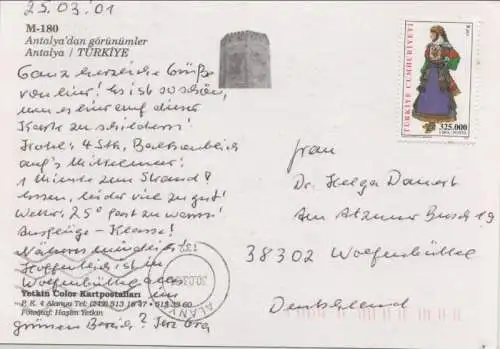 25.03.01
M-180
Antalya'dan görünümler
Antalya / TÜRKİYE
Ganz herzliche Grüße
von hier! Es ist so schön,
um es hier auf dieser
Karte zu schildern!
Hotel: 4 Stk, Balkonblick
auf's Mittelmeer!
1 Minute zum Strand!
Essen, leider viel zu gut!
Wetter: 25° fast zu warm!
Ausflüge - Klasse!
Näheres mündlich!
Hoffentlich ist in
Wolfenbüttel alles
im
grünen Bereich?
Yetkin Color Kartpostalları
P. K. 4 Alanya Tel: (242) 513 16 37 - 513 33 60
Fotoğraf: Haşim Yetkin
TÜRKİYE CUMHURİYETİ
325.000
LİRA
POSTA
ALANYA
Frau
Dr. Helga Danert
Am Atzumer Busch 19
38302 Wolfenbüttel
Deutschland